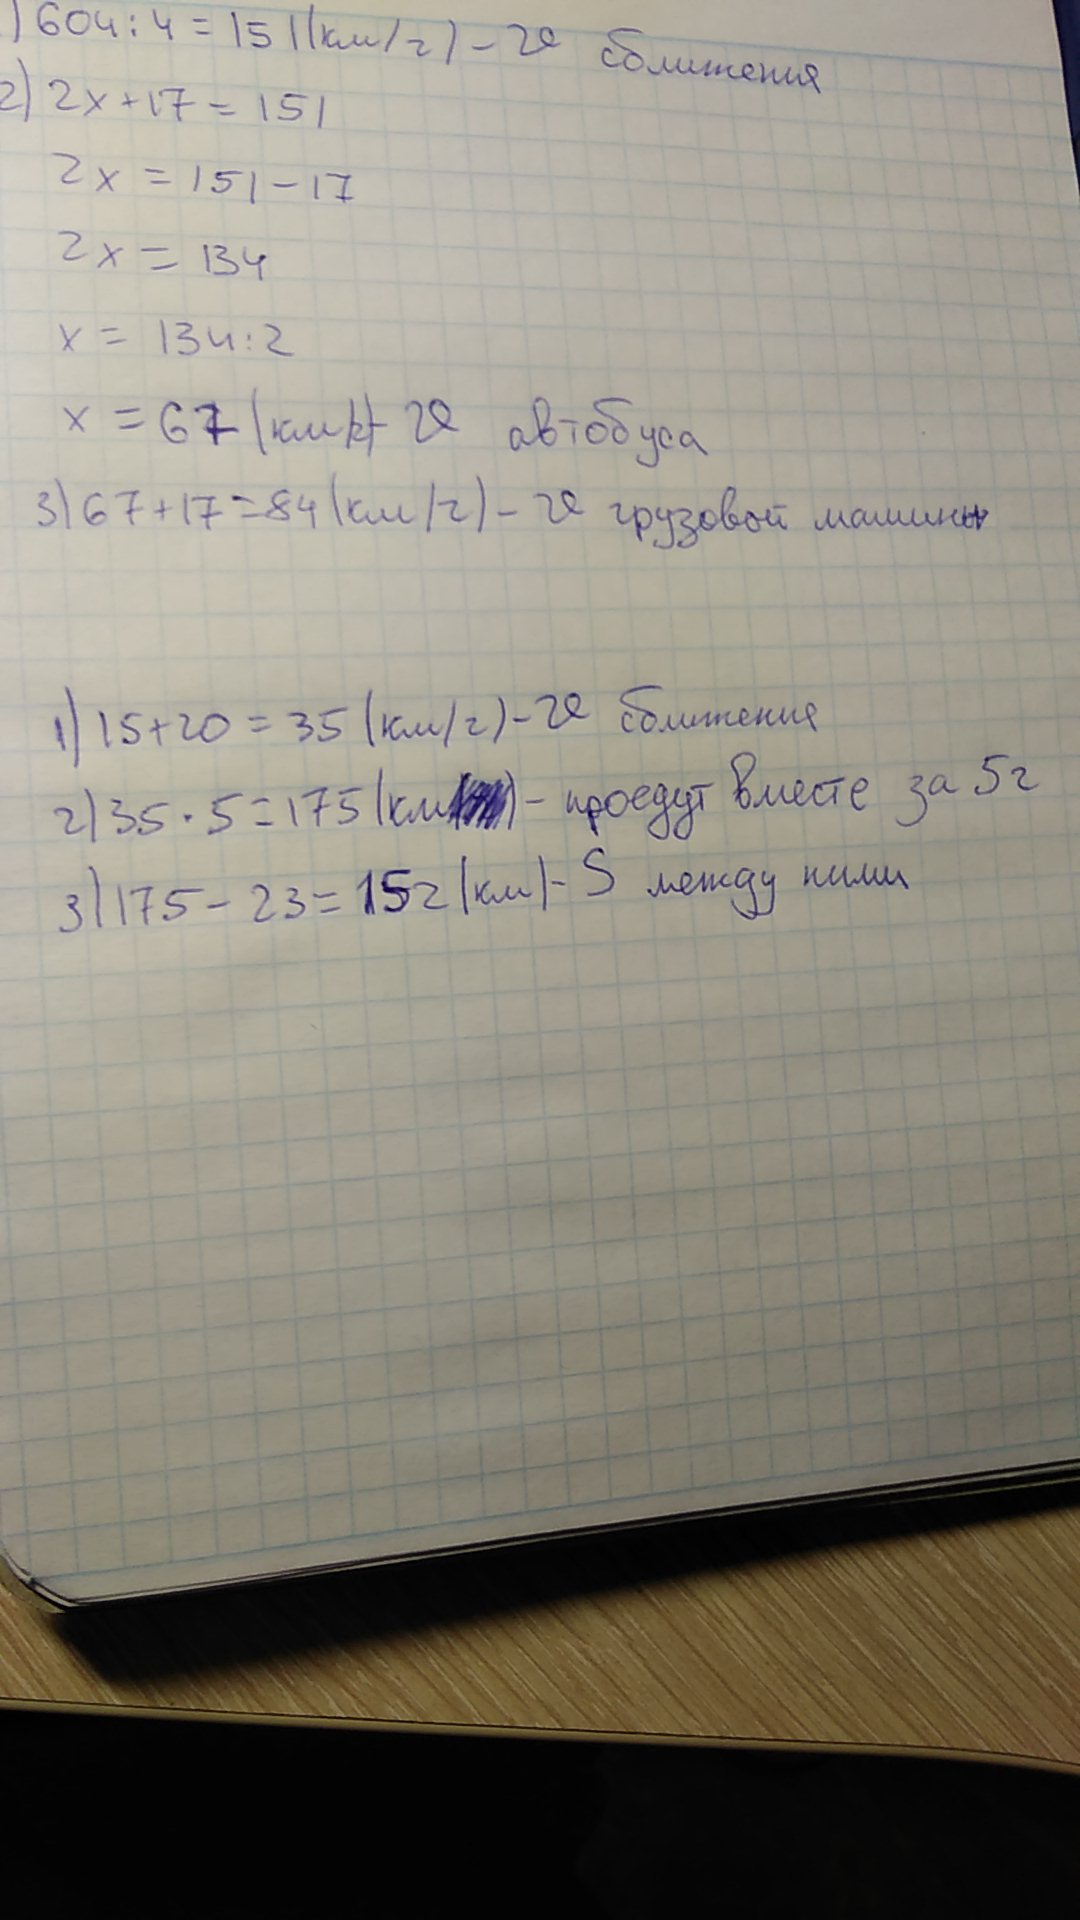 1) 604 : 4 = 151 (км/г) – v сближения
2) 2x + 17 = 151
2x = 151 – 17
2x = 134
x = 134 : 2
x = 67 (км/г) – v автобуса
3) 67 + 17 = 84 (км/г) – v грузовой машины
1) 15 + 20 = 35 (км/г) – v сближения
2) 35 · 5 = 175 (км) – проедут вместе за 5г
3) 175 – 23 = 152 (км) – S между ними